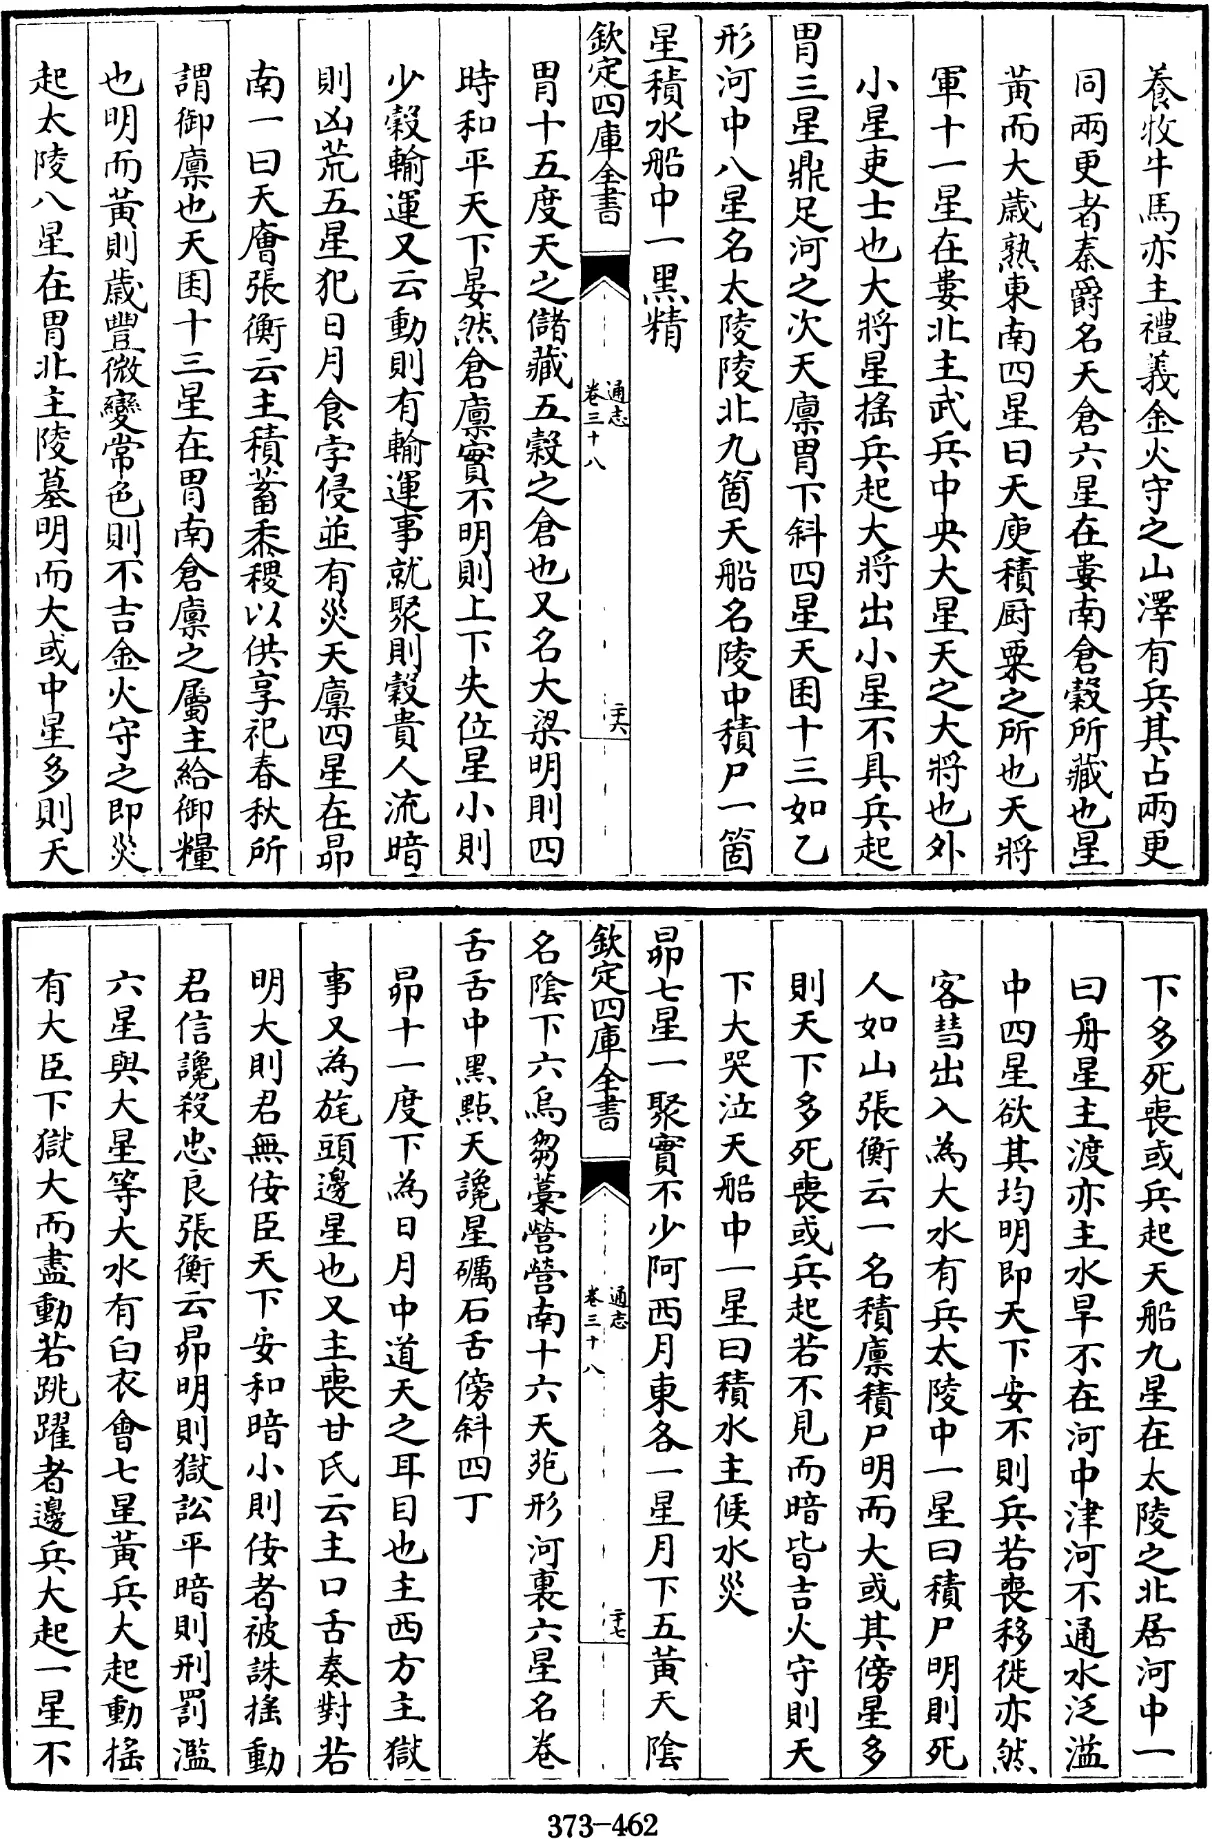 養牧牛馬亦主禮義金火守之山澤有兵其占兩更
同兩更者秦爵名天倉六星在婁南倉穀所藏也星
黃而大歲熟東南四星曰天庾積厨粟之所也天將
軍十一星在婁北主武兵中央大星天之大將也外
小星吏士也大將星搖兵起大將出小星不具兵起
胃三星鼎足河之次天廩胃下斜四星天囷十三如乙
形河中八星名太陵陵北九箇天船名陵中積尸一箇
星積水船中一黑精
欽定四庫全書
通志
卷三十八
二十六
胃十五度天之儲藏五穀之倉也又名大梁明則四
時和平天下晏然倉廩實不明則上下失位星小則
少穀輸運又云動則有輸運事就聚則穀貴人流暗
則凶荒五星犯日月食孛侵並有災天廩四星在昴
南一曰天廥張衡云主積蓄黍稷以供享祀春秋所
謂御廩也天囷十三星在胃南倉廩之屬主給御糧
也明而黃則歲豐微變常色則不吉金火守之即災
起太陵八星在胃北主陵墓明而大或中星多則天
下多死喪或兵起天船九星在太陵之北居河中一
曰舟星主渡亦主水旱不在河中津河不通水泛溢
中四星欲其均明即天下安不則兵若喪移徙亦然
客彗出入為大水有兵太陵中一星曰積尸明則死
人如山張衡云一名積廩積尸明而大或其傍星多
則天下多死喪或兵起若不見而暗皆吉火守則天
下大哭泣天船中一星曰積水主候水災
昴七星一聚實不少阿西月東各一星月下五黃天陰
欽定四庫全書
通志
卷三十八
二十七
名陰下六烏芻藁營營南十六天苑形河裏六星名卷
舌舌中黑點天讒星礪石舌傍斜四丁
昴十一度下為日月中道天之耳目也主西方主獄
事又為旄頭邊星也又主喪甘氏云主口舌奏對若
明大則君無佞臣天下安和暗小則佞者被誅搖動
君信讒殺忠良張衡云昴明則獄訟平暗則刑罰濫
六星與大星等大水有白衣會七星黃兵大起動搖
有大臣下獄大而盡動若跳躍者邊兵大起一星不
373-462